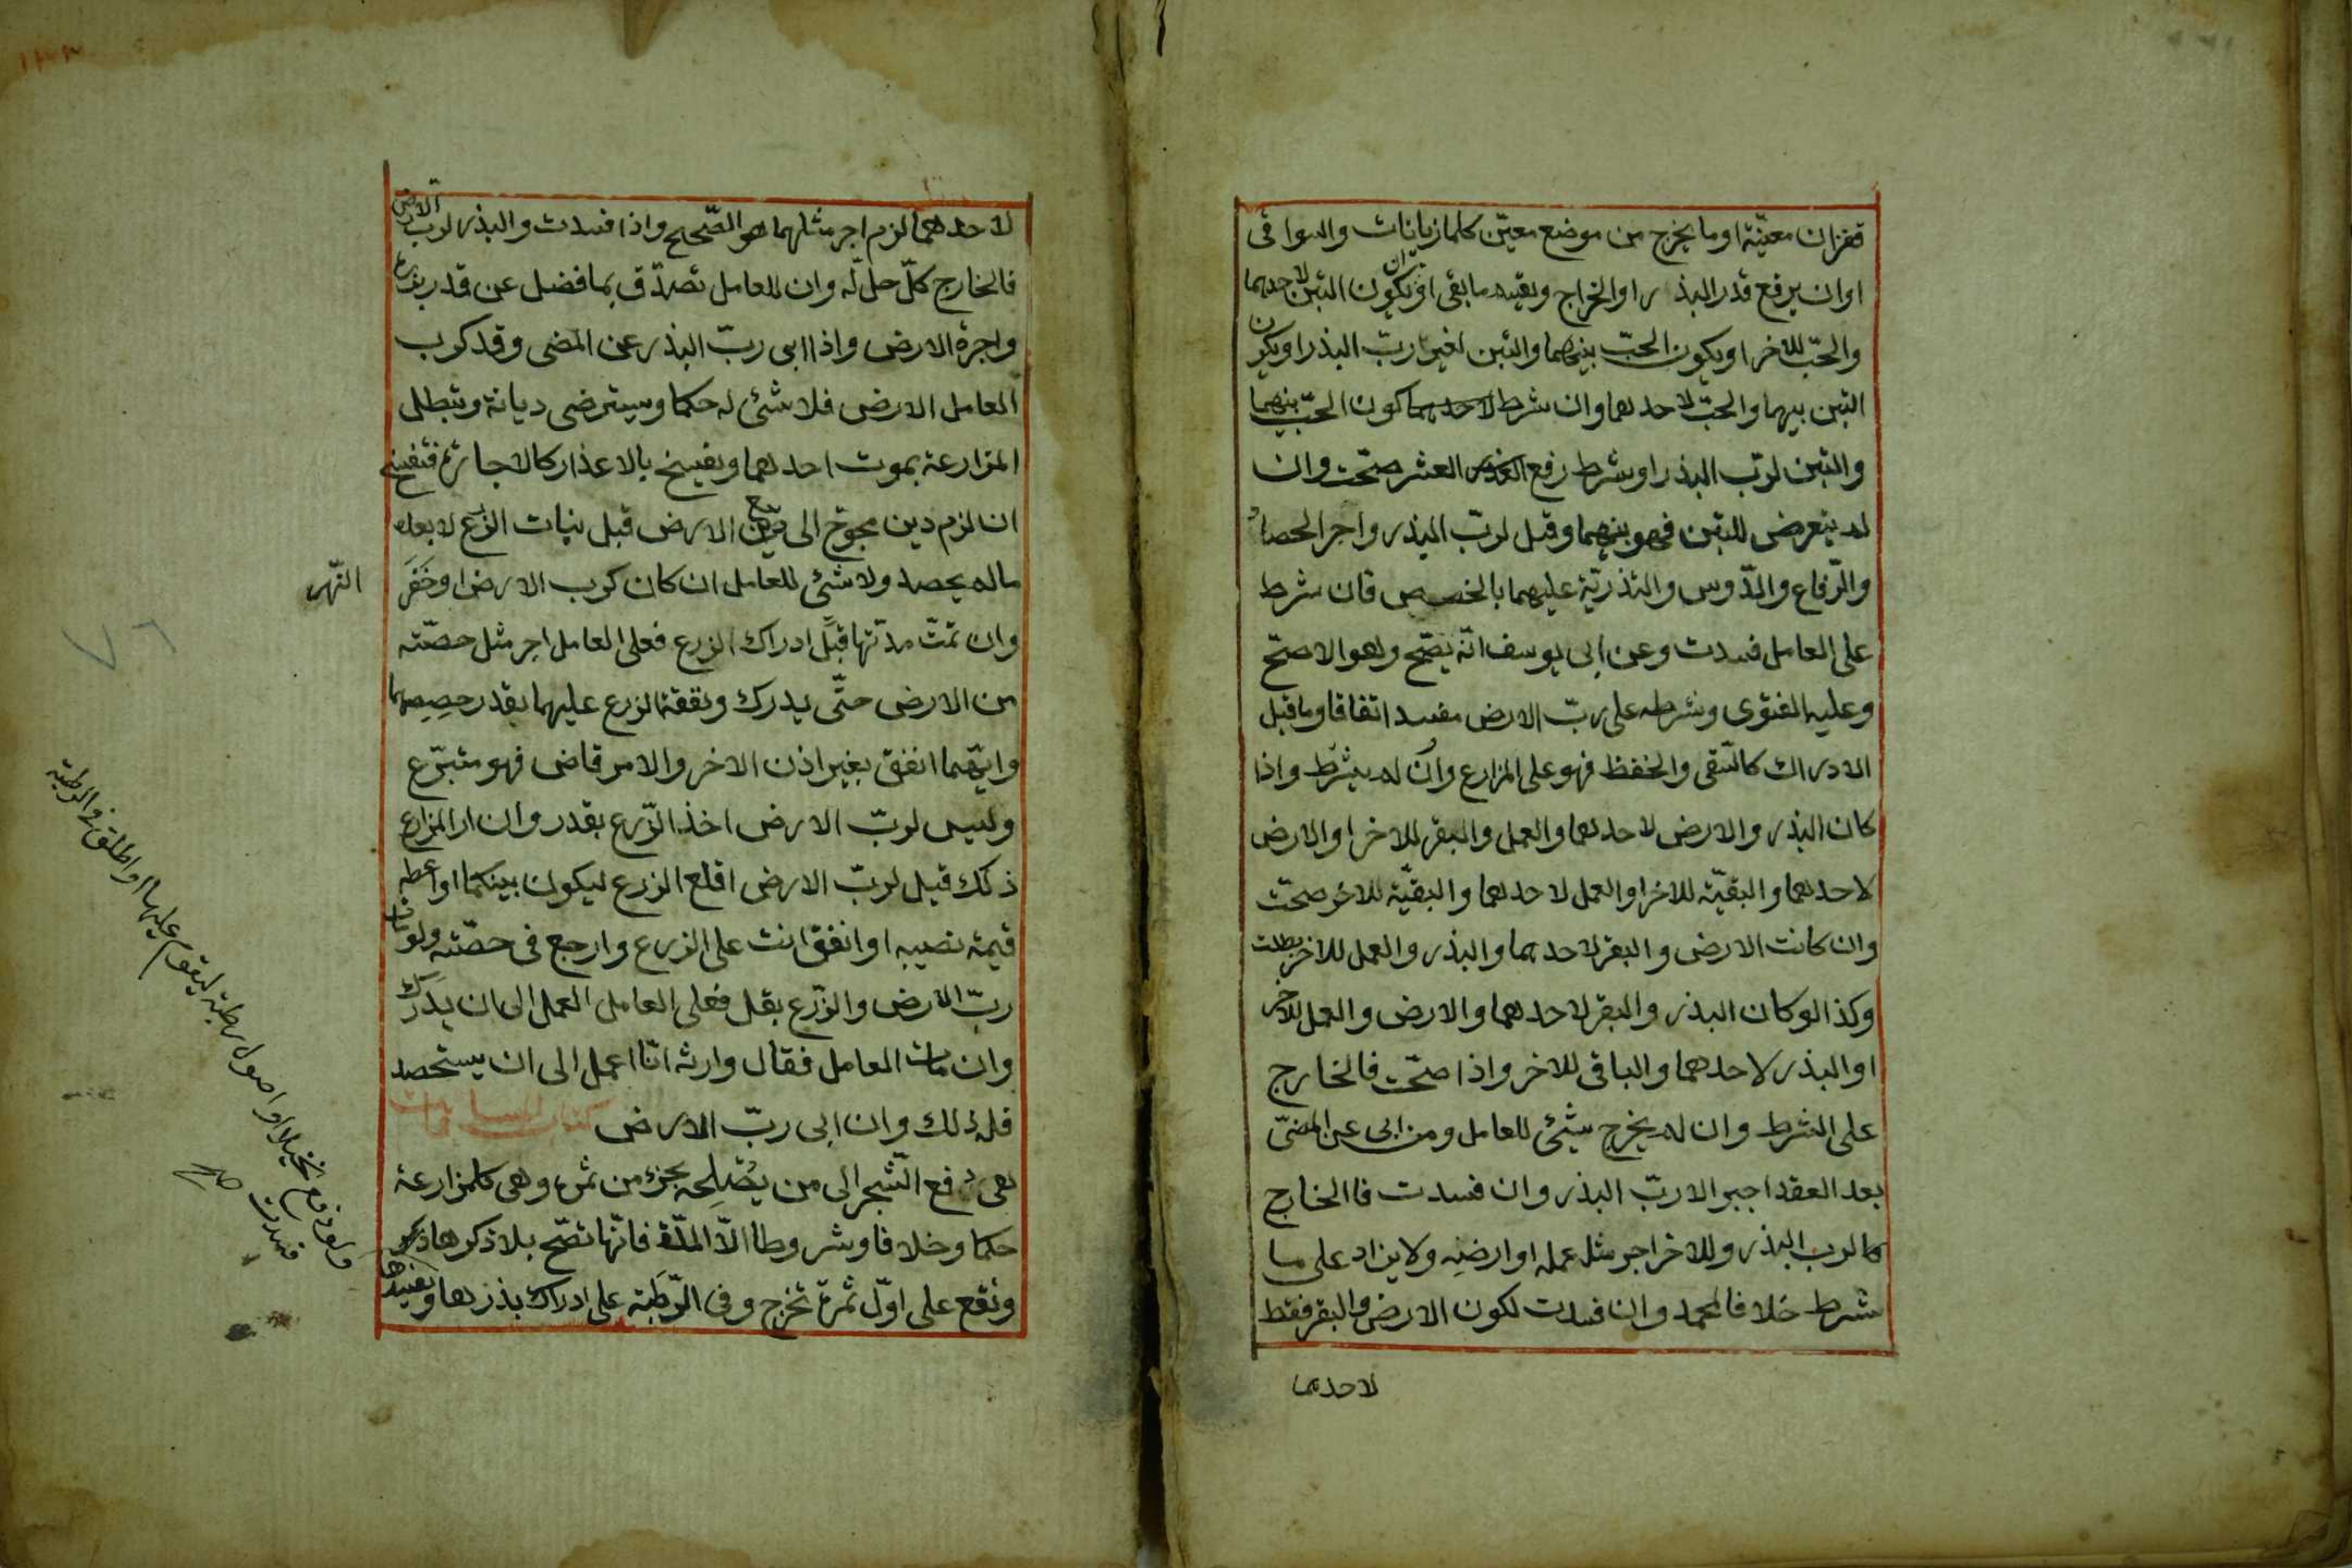 قفزان معيّنة او ما يخرج من موضع معيّن كلماز يانات والسواقى
او ان يرفع قدر البذر او الخراج ويقسم ما بقى او ان يكون التبن لاحدهما
والحبّ للاخر او يكون الحبّ بينهما والتبن لغير ربّ البذر او يكون
التبن بينهما والحبّ لاحدهما وان شرط لاحدهما كون الحبّ بينهما
والتبن لربّ البذر او شرط رفع العشر صحّت وان
لم يتعرض للتبن فهو بينهما وقيل لربّ البذر واجر الحصاد
والرّفاع والدّوس والتذريّة عليهما بالحصص فان شرط
على العامل فسدت وعن ابى يوسف انّه يصّح وهو الاصحّ
وعليه الفتوى وشرطه على ربّ الارض مفسد اتفاقا وما قبل
الادراك كالسّقى والحفظ فهو على المزارع وان لم يشرط واذا
كان البذر والارض لاحدهما والعمل والبقر للاخر او الارض
لاحدهما والبقيّة للاخر او العمل لاحدهما والبقيّة للاخر صحّت
وان كانت الارض والبقر لاحدهما والبذر والعمل للاخر بطلت
وكذا لو كان البذر والبقر لاحدهما والارض والعمل للاخر
او البذر لاحدهما والباقى للاخر واذا صحّت فالخارج
على الشرط وان لم يخرج شيئ للعامل ومن ابى عن المضىّ
بعد العقد اجبر الا ربّ البذر وان فسدت فاالخارج
كا لرب البذر وللاخر اجر مثل عمله او ارضه ولا يزاد على ما
شرط خلافا لمحمد وان فسدت لكون الارض والبقر فقط
لاحدهما
لاحدهما لزم اجر مثلهما هو الصّحيح واذا فسدت والبذر لربّ الارض
فالخارج كلّ حلّ له وان للعامل تصدّق بما فضل عن قدر بذره
واجرة الارض واذا ابى ربّ البذر عن المضى وقد كرب
العامل الارض فلا شئ له حكما ويسترضى ديانة وتبطل
المزارعة بموت احدهما وتفسخ بالاعذار كالاجارة فتفسخ
ان لزم دين محوّج الى بيع الارض قبل نبات الزّرع لا بعده
ما لم يحصد ولا شئ للعامل ان كان كرب الارض او حَفَرَ
النّهر
وان تمّت مدّتها قبل ادراك الزرع فعلى العامل اجر مثل حصّته
من الارض حتّى يدرك ونفقة الزرع عليهما بقدر حصصهما
وايّهما انفق بغير اذن الاخر والامر قاضى فهو متبرّع
وليس لربّ الارض اخذ الزّرع بقدر وان ار المزارع
ذلك قيل لربّ الارض اقلع الزرع ليكون بينكما او اعطه
قيمة نصيبه او انفق انت على الزرع وارجع فى حصّته ولو مات
ربّ الارض والزّرع بقل فعلى العامل العمل الى ان يدرك
وان مات العامل فقال وارثه انّا اعمل الى ان يستحصد
فله ذلك وان ابى ربّ الارض
هى دفع الشّجر الى من يُصْلِحه بجزء من ثمره وهى كلمزارعة
حكما وخلافا وشروطا الاّ المدّة فانّها تصّح بلا ذكرها
وتقع على اوّل ثمرة تخرج وفى الرّطبة على ادراك بذرها
ولو دفع نخيلا او اصول رطبة ليقوم عليها او اطلق فى الرطبة
فسدت صح